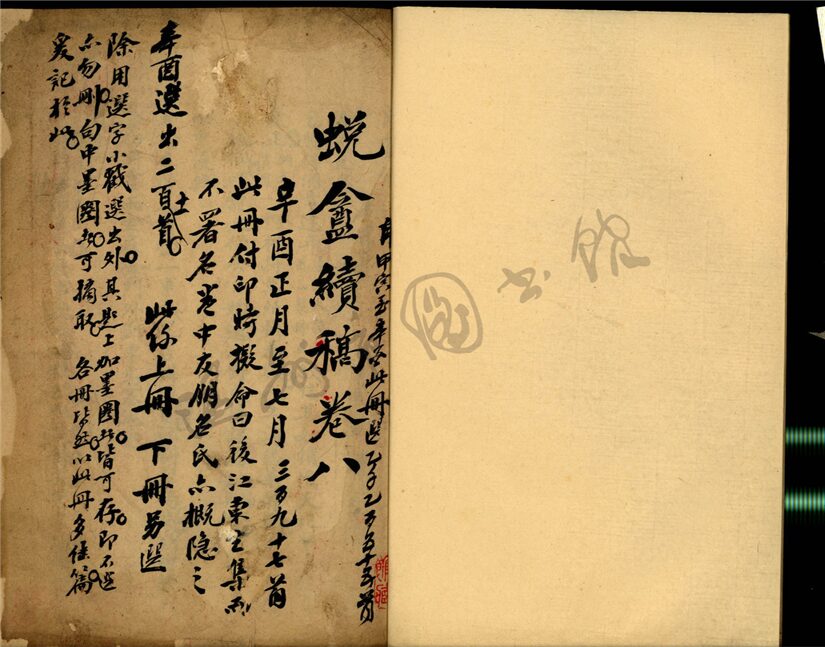 甲寅至辛酉此冊選
蜕盦續稿卷八
辛酉正月至七月 三百九十七首
此冊付印時擬命曰後江東生集而
不署名卷中友朋名氏亦概隱之
辛酉選出二百十首
此係上冊 下冊另選
除用選字小戳選出外其題上加墨圈者皆可存即不選
亦勿刪句中墨圈者可摘取 各冊皆然以此冊多佳篇
爰記於此